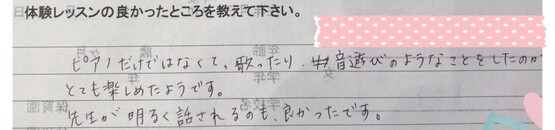 体験レッスンの良かったところを教えて下さい。
ピアノだけではなくて、歌ったり、音遊びのようなことをしたのが
とても楽しめたようです。
先生が明るく話されるのも、良かったです。